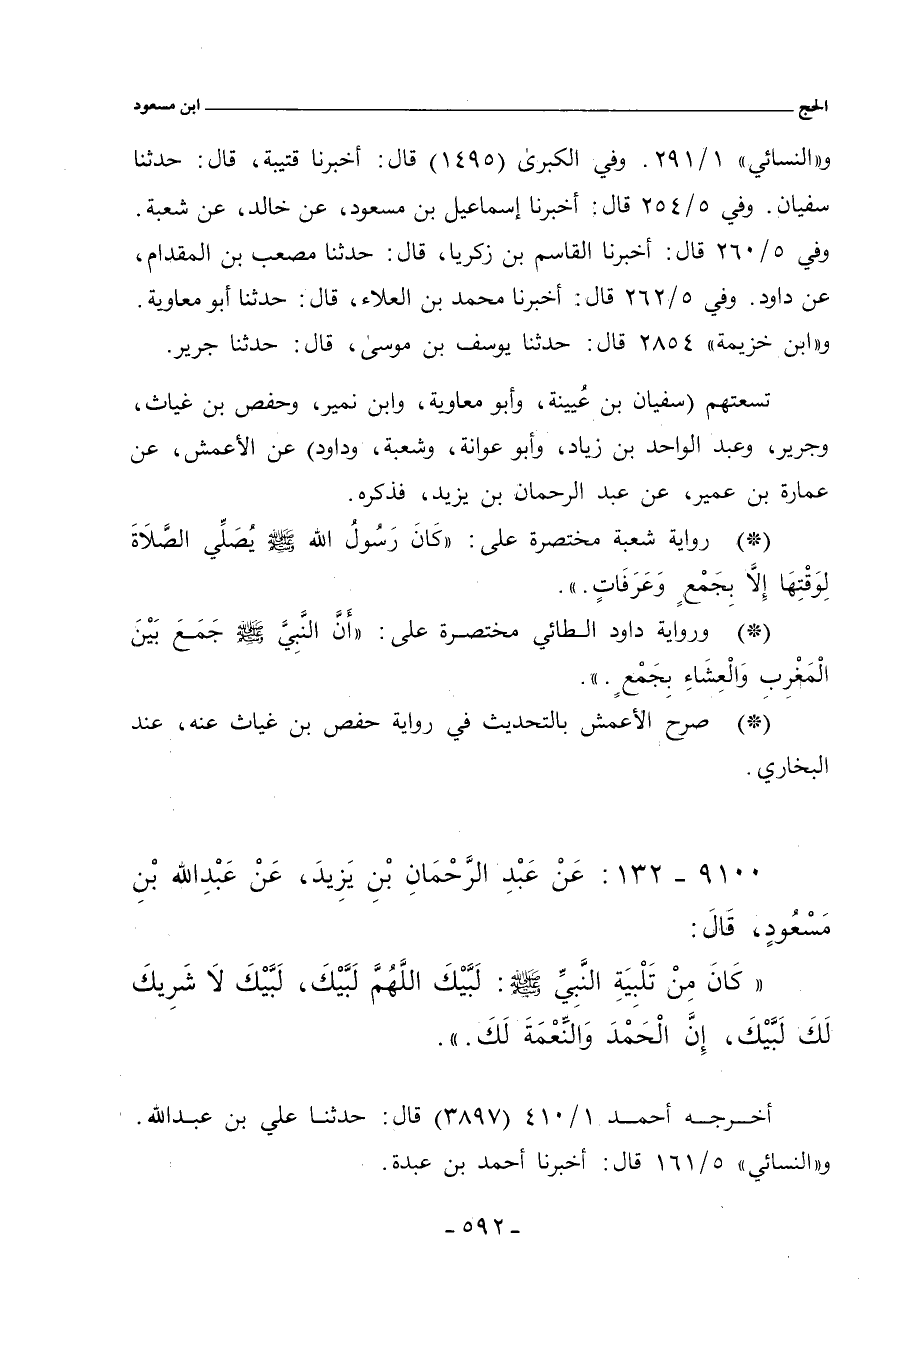 الحج ابن مسعود
و«النسائي» ٢٩١/١. وفي الكبرىٰ (١٤٩٥) قال: أخبرنا قتيبة، قال: حدثنا
سفيان. وفي ٢٥٤/٥ قال: أخبرنا إسماعيل بن مسعود، عن خالد، عن شعبة.
وفي ٢٦٠/٥ قال: أخبرنا القاسم بن زكريا، قال: حدثنا مصعب بن المقدام،
عن داود. وفي ٢٦٢/٥ قال: أخبرنا محمد بن العلاء، قال: حدثنا أبو معاوية.
و«ابن خزيمة» ٢٨٥٤ قال: حدثنا يوسف بن موسىٰ، قال: حدثنا جرير.
تسعتهم (سفيان بن عُيينة، وأبو معاوية، وابن نمير، وحفص بن غياث،
وجرير، وعبد الواحد بن زياد، وأبو عوانة، وشعبة، وداود) عن الأعمش، عن
عمارة بن عمير، عن عبد الرحمان بن يزيد، فذكره.
(*) رواية شعبة مختصرة على: «كَانَ رَسُولُ الله ﷺ يُصَلِّي الصَّلَاةَ
لِوَقْتِهَا إِلَّا بِجَمْعٍ وَعَرَفَاتٍ.».
(*) ورواية داود الطائي مختصرة على: «أَنَّ النَّبِيَّ ﷺ جَمَعَ بَيْنَ
الْمَغْرِبِ وَالْعِشَاءِ بِجَمْعٍ.».
(*) صرح الأعمش بالتحديث في رواية حفص بن غياث عنه، عند
البخاري.
٩١٠٠ - ١٣٢: عَنْ عَبْدِ الرَّحْمَانِ بْنِ يَزِيدَ، عَنْ عَبْدِالله بْنِ
مَسْعُودٍ، قَالَ:
« كَانَ مِنْ تَلْبِيَةِ النَّبِيِّ ﷺ: لَبَّيْكَ اللَّهُمَّ لَبَّيْكَ، لَبَّيْكَ لَا شَرِيكَ
لَكَ لَبَّيْكَ، إِنَّ الْحَمْدَ وَالنِّعْمَةَ لَكَ.».
أخرجه أحمد ٤١٠/١ (٣٨٩٧) قال: حدثنا علي بن عبدالله.
و«النسائي» ١٦١/٥ قال: أخبرنا أحمد بن عبدة.
- ٥٩٢ -